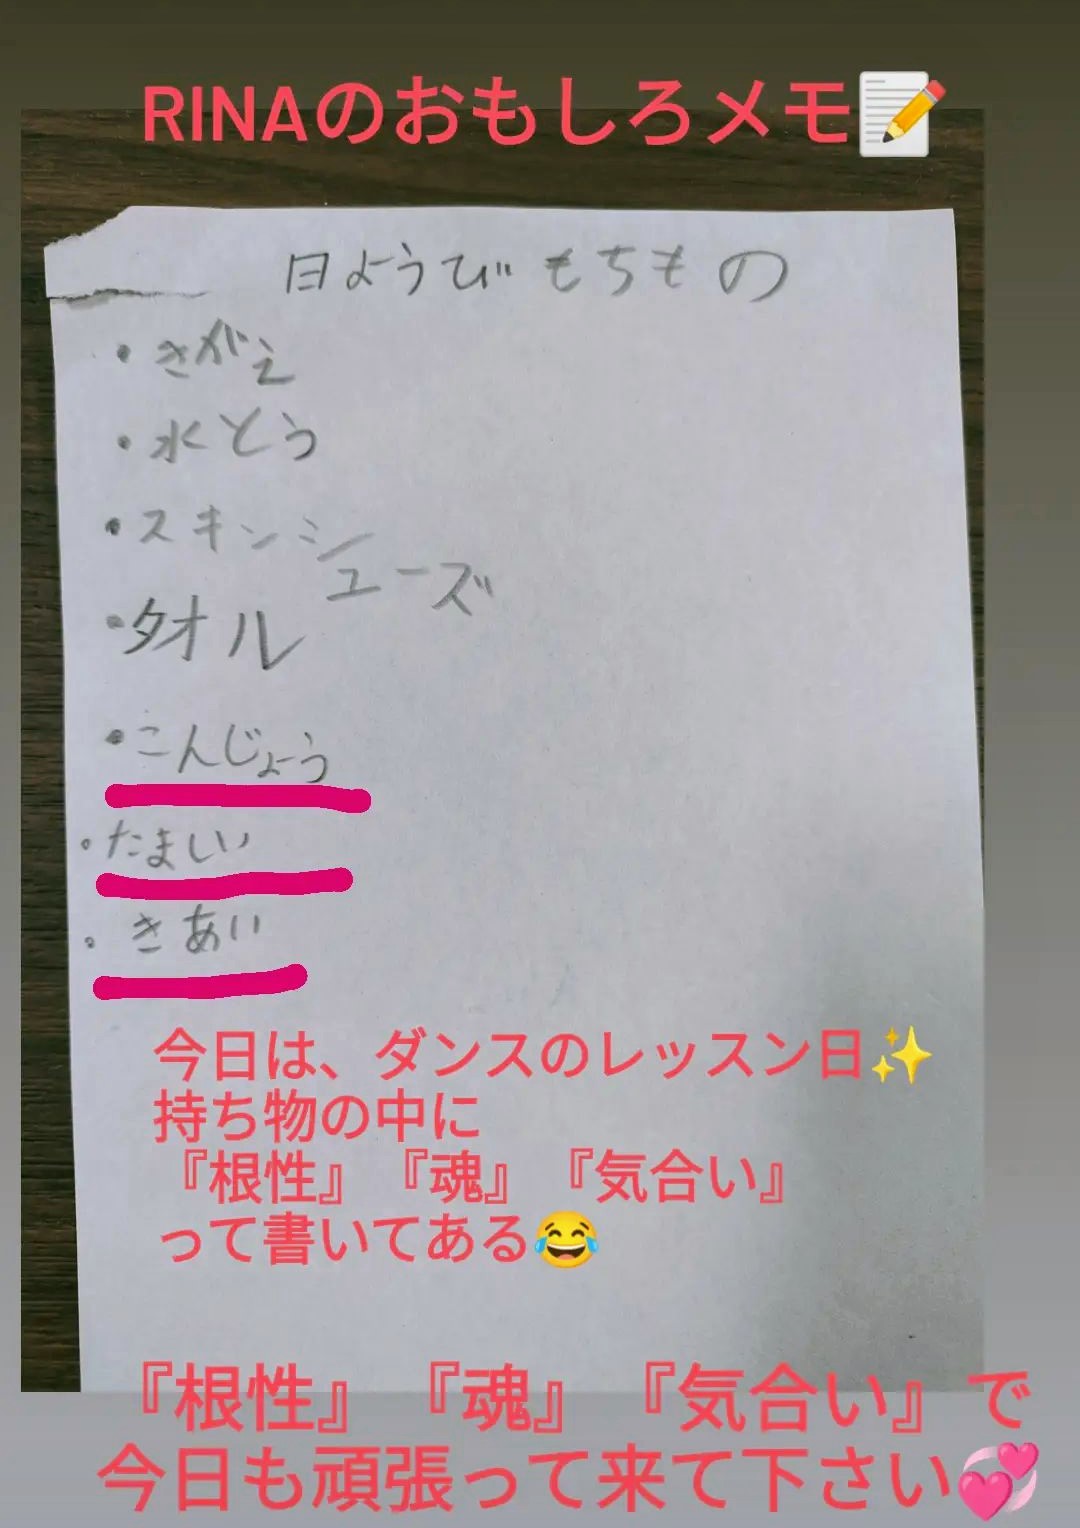 RINAのおもしろメモ📝
日ようび もちもの
・きがえ
・水とう
・スキンシューズ
・タオル
・こんじょう
・たましい
・きあい
今日は、ダンスのレッスン日✨
持ち物の中に
『根性』『魂』『気合い』
って書いてある😂
『根性』『魂』『気合い』で
今日も頑張って来て下さい💞